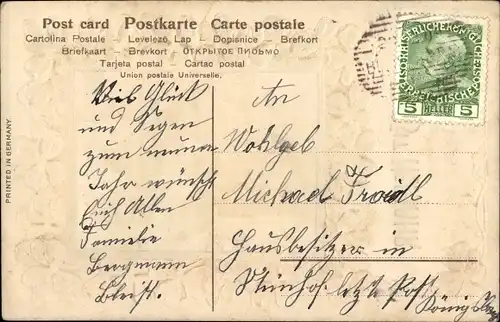 Post card Postkarte Carte postale
Cartolina Postale – Levelező Lap – Dopisnice – Brefkort
Briefkaart – Brevkort – ОТКРЫТОЕ ПИСЬМО
Tarjeta postal – Cartao postal
Union postale Universelle.
PRINTED IN GERMANY.
5 5
Viel Glück
und Segen
zum neuen
Jahr wünscht
Euch Allen
Familie
Bergmann
An
Wohlgeb
Michael
Hausbesitzer in
letzte Post